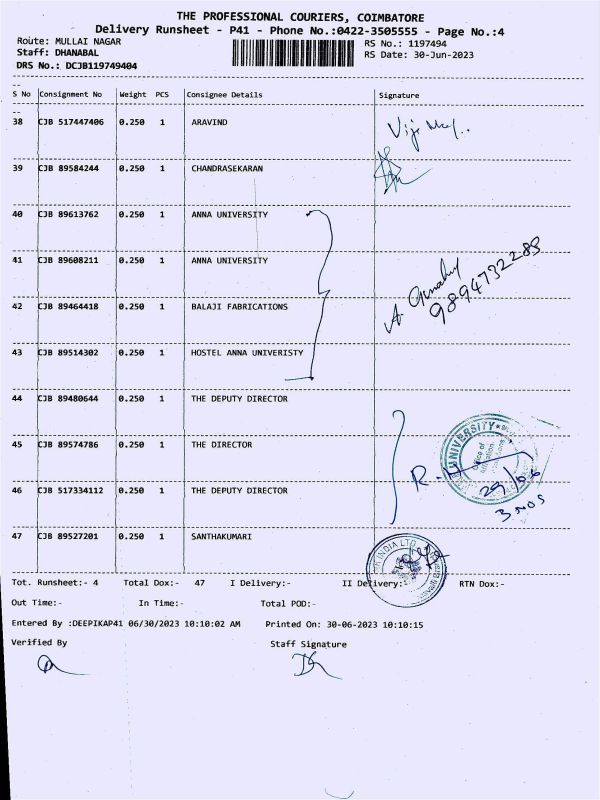 THE PROFESSIONAL COURIERS, COIMBATORE
Delivery Runsheet - P41 - Phone No.:0422-3505555 - Page No.:4
Route: MULLAI NAGAR RS No.: 1197494
Staff: DHANABAL RS Date: 30-Jun-2023
DRS No.: DCJB119749404
S No Consignment No Weight PCS Consignee Details Signature
38 CJB 517447406 0.250 1 ARAVIND
39 CJB 89584244 0.250 1 CHANDRASEKARAN
40 CJB 89613762 0.250 1 ANNA UNIVERSITY
41 CJB 89608211 0.250 1 ANNA UNIVERSITY
9894732288
42 CJB 89464418 0.250 1 BALAJI FABRICATIONS
43 CJB 89514302 0.250 1 HOSTEL ANNA UNIVERISTY
44 CJB 89480644 0.250 1 THE DEPUTY DIRECTOR
UNIVERSITY
45 CJB 89574786 0.250 1 THE DIRECTOR
46 CJB 517334112 0.250 1 THE DEPUTY DIRECTOR
29/06
3 NOS
47 CJB 89527201 0.250 1 SANTHAKUMARI
INDIA LTD
Tot. Runsheet:- 4 Total Dox:- 47 I Delivery:- II Delivery:- RTN Dox:-
Out Time:- In Time:- Total POD:-
Entered By :DEEPIKAP41 06/30/2023 10:10:02 AM Printed On: 30-06-2023 10:10:15
Verified By Staff Signature